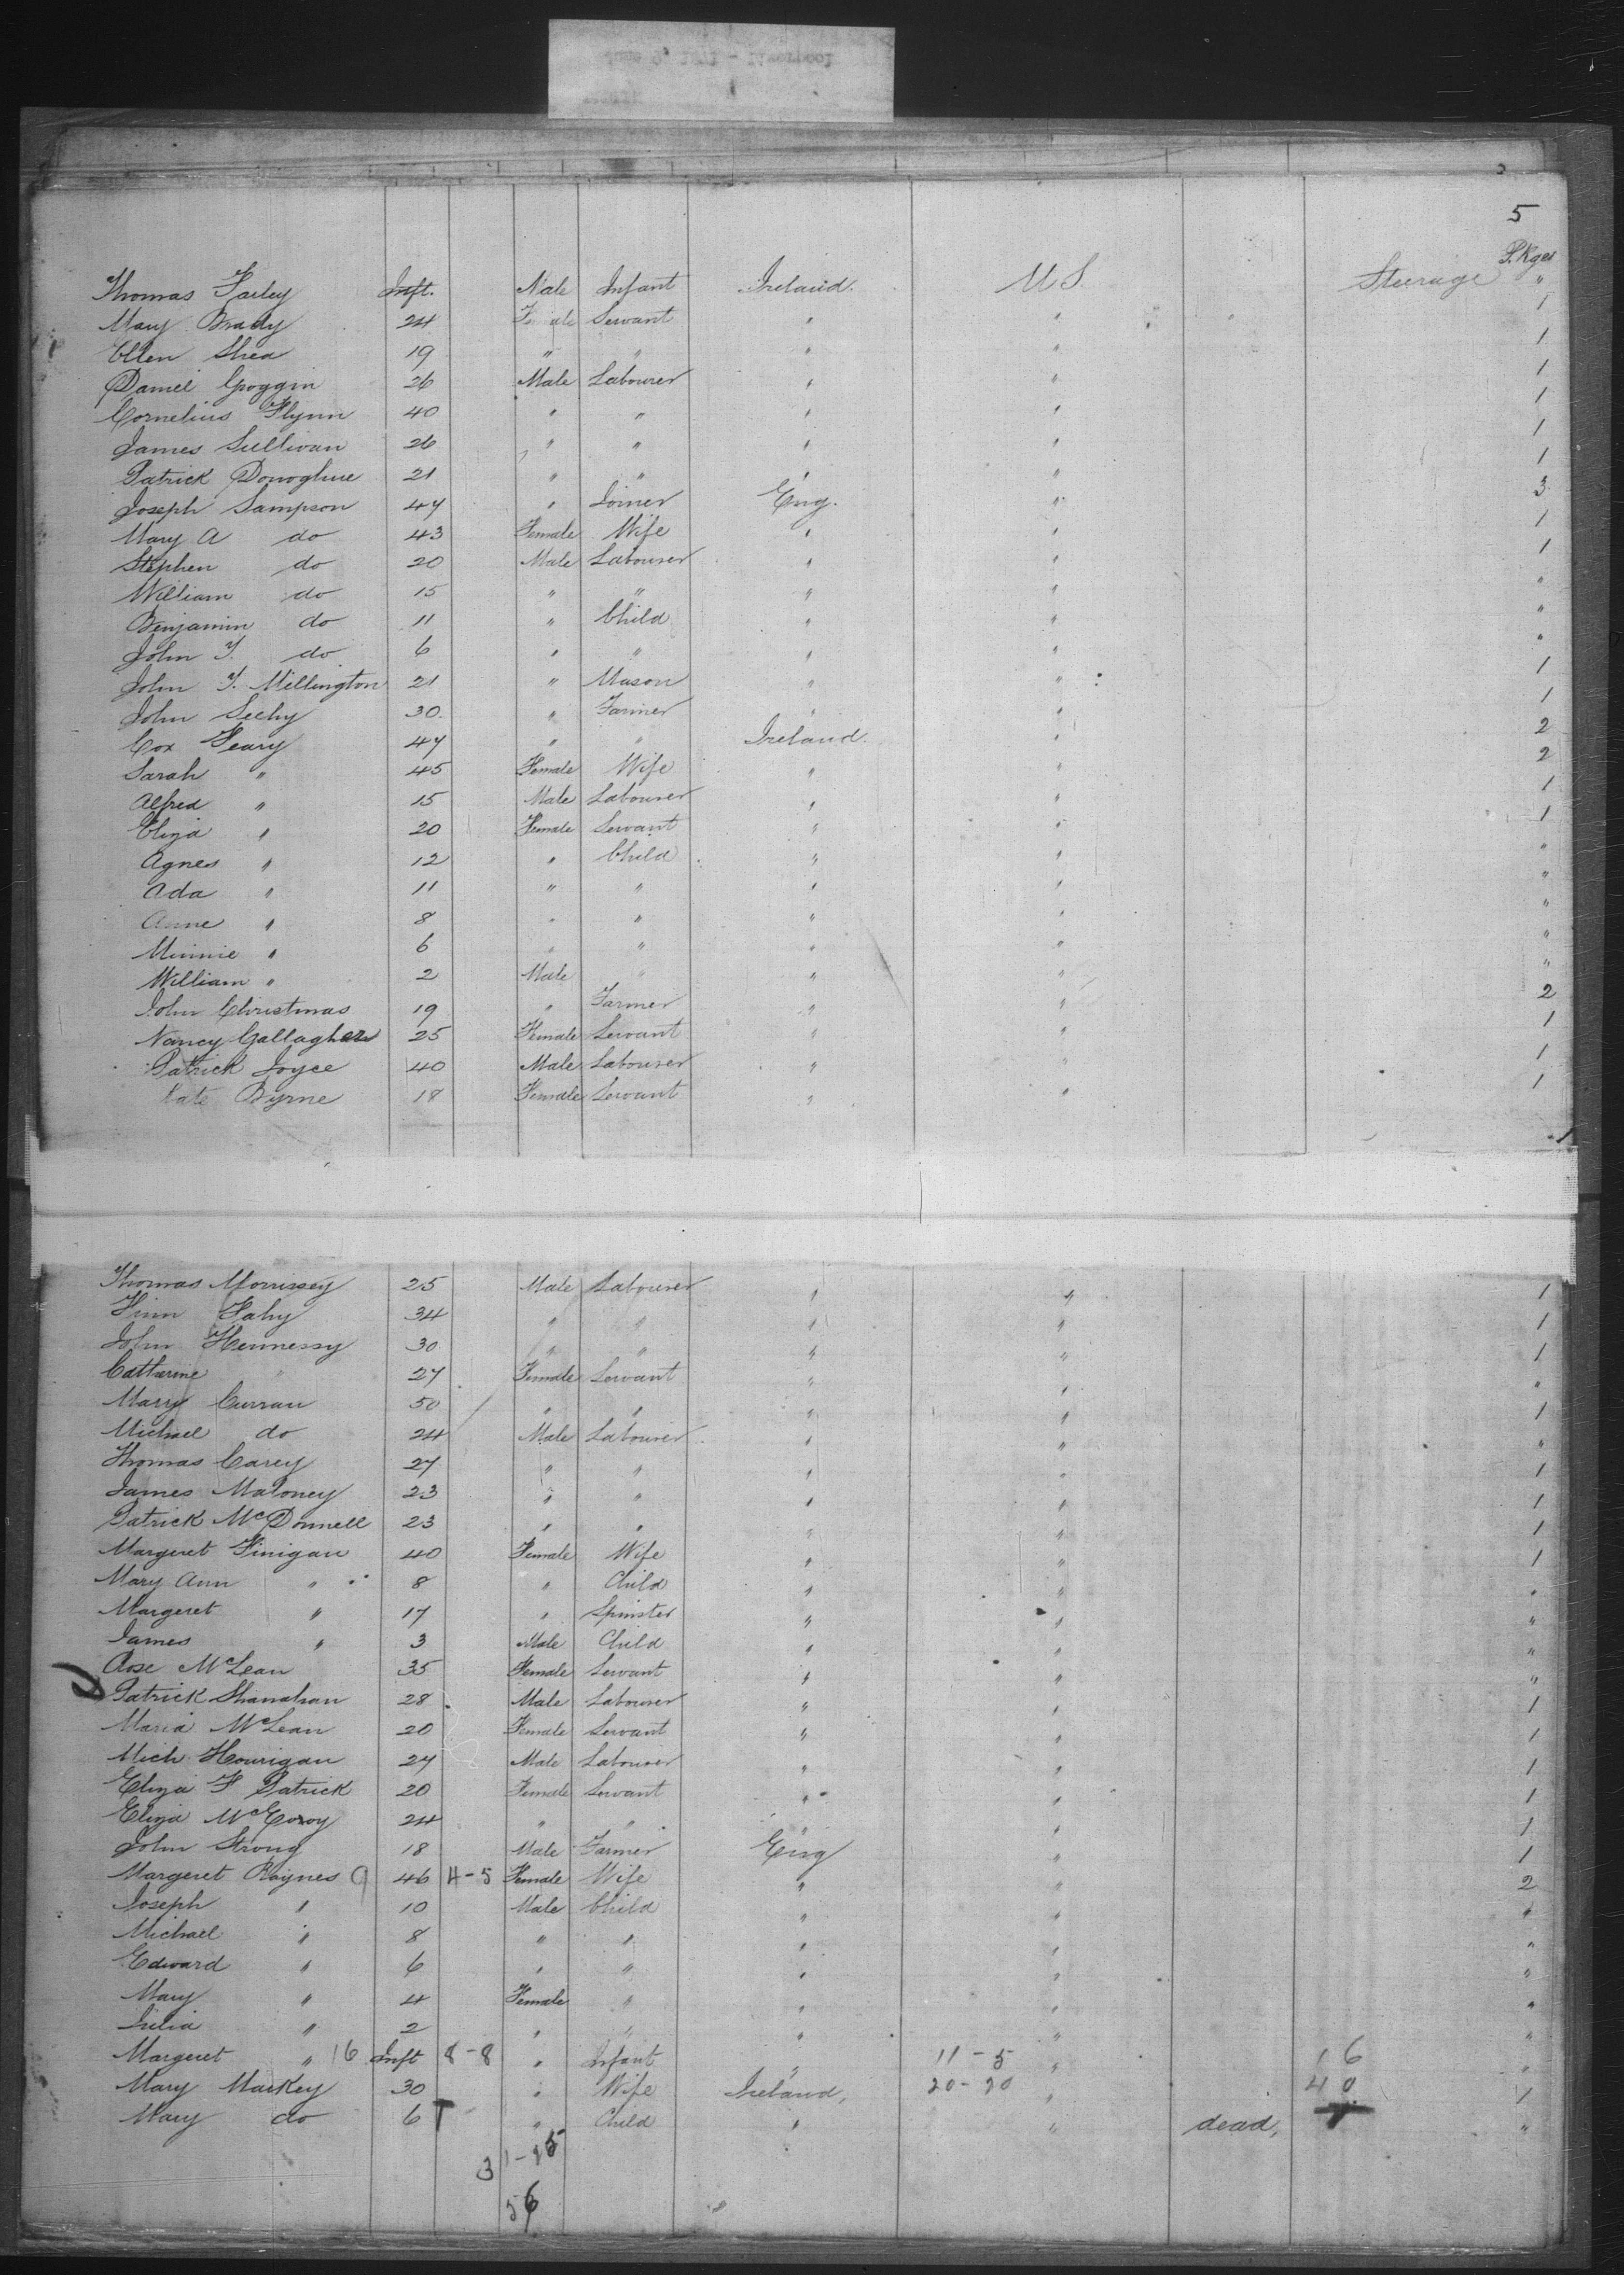 5
P.Kges
Thomas Farley Inft. Male Infant Ireland. U S. Steerage "
Mary Brady 24 Female Servant " " 1
Ellen Shea 19 " " " " 1
Daniel Goggin 26 Male Labourer " " 1
Cornelius Flynn 40 " " " " 1
James Sullivan 26 " " " " 1
Patrick Donoghue 21 " " " " 1
Joseph Sampson 47 " Joiner Eng. " 3
Mary A do 43 Female Wife " " 1
Stephen do 20 Male Labourer " " 1
William do 15 " " " " "
Benjamin do 11 " Child " " "
John T. do 6 " " " " "
John T. Millington 21 " Mason " " 1
John Seehy 30. " Farmer " " 1
Cox Feary 47 " " Ireland. " 2
Sarah " 45 Female Wife " " 2
Alfred " 15 Male Labourer " " 1
Eliza " 20 Female Servant " " 1
Agnes " 12 " Child " " "
Ada " 11 " " " " "
Anne " 8 " " " " "
Minnie " 6 " " " " "
William " 2 Male " " " "
John Christmas 19 " Farmer " " 2
Nancy Gallagher 25 Female Servant " " 1
Patrick Joyce 40 Male Labourer " " 1
Kate Byrne 18 Female Servant " " 1
Thomas Morrissey 25 Male Labourer " " 1
Finn Fahy 34 " " " " 1
John Hennessy 30 " " " " 1
Catharine " 27 Female Servant " " "
Mary Curran 50 " " " " 1
Michael do 24 Male Labourer " " "
Thomas Carey 27 " " " " 1
James Maloney 23 " " " " 1
Patrick McDonnell 23 " " " " 1
Margeret Finigan 40 Female Wife " " 1
Mary Ann " 8 " Child " " "
Margeret " 17 " Spinster " " "
James " 3 Male Child " " "
Rose McLean 35 Female Servant " " "
Patrick Shanahan 28 Male Labourer " " 1
Maria McLean 20 Female Servant " " 1
Mich Hourigan 27 Male Labourer " " 1
Eliza F Patrick 20 Female Servant " " 1
Eliza McEvoy 24 " " " " 1
John Strong 18 Male Farmer Eng " 1
Margeret Raynes 9 46 4-5 Female Wife " " 2
Joseph " 10 Male Child " " "
Michael " 8 " " " " "
Edward " 6 " " " " "
Mary " 4 Female " " " "
Julia " 2 " " " " "
Margeret " 16 Inft 8-8 " Infant " 11-5 " 16 "
Mary Markey 30 " Wife Ireland, 20-20 " 40 1
Mary do 6 T " Child " " dead, "
56